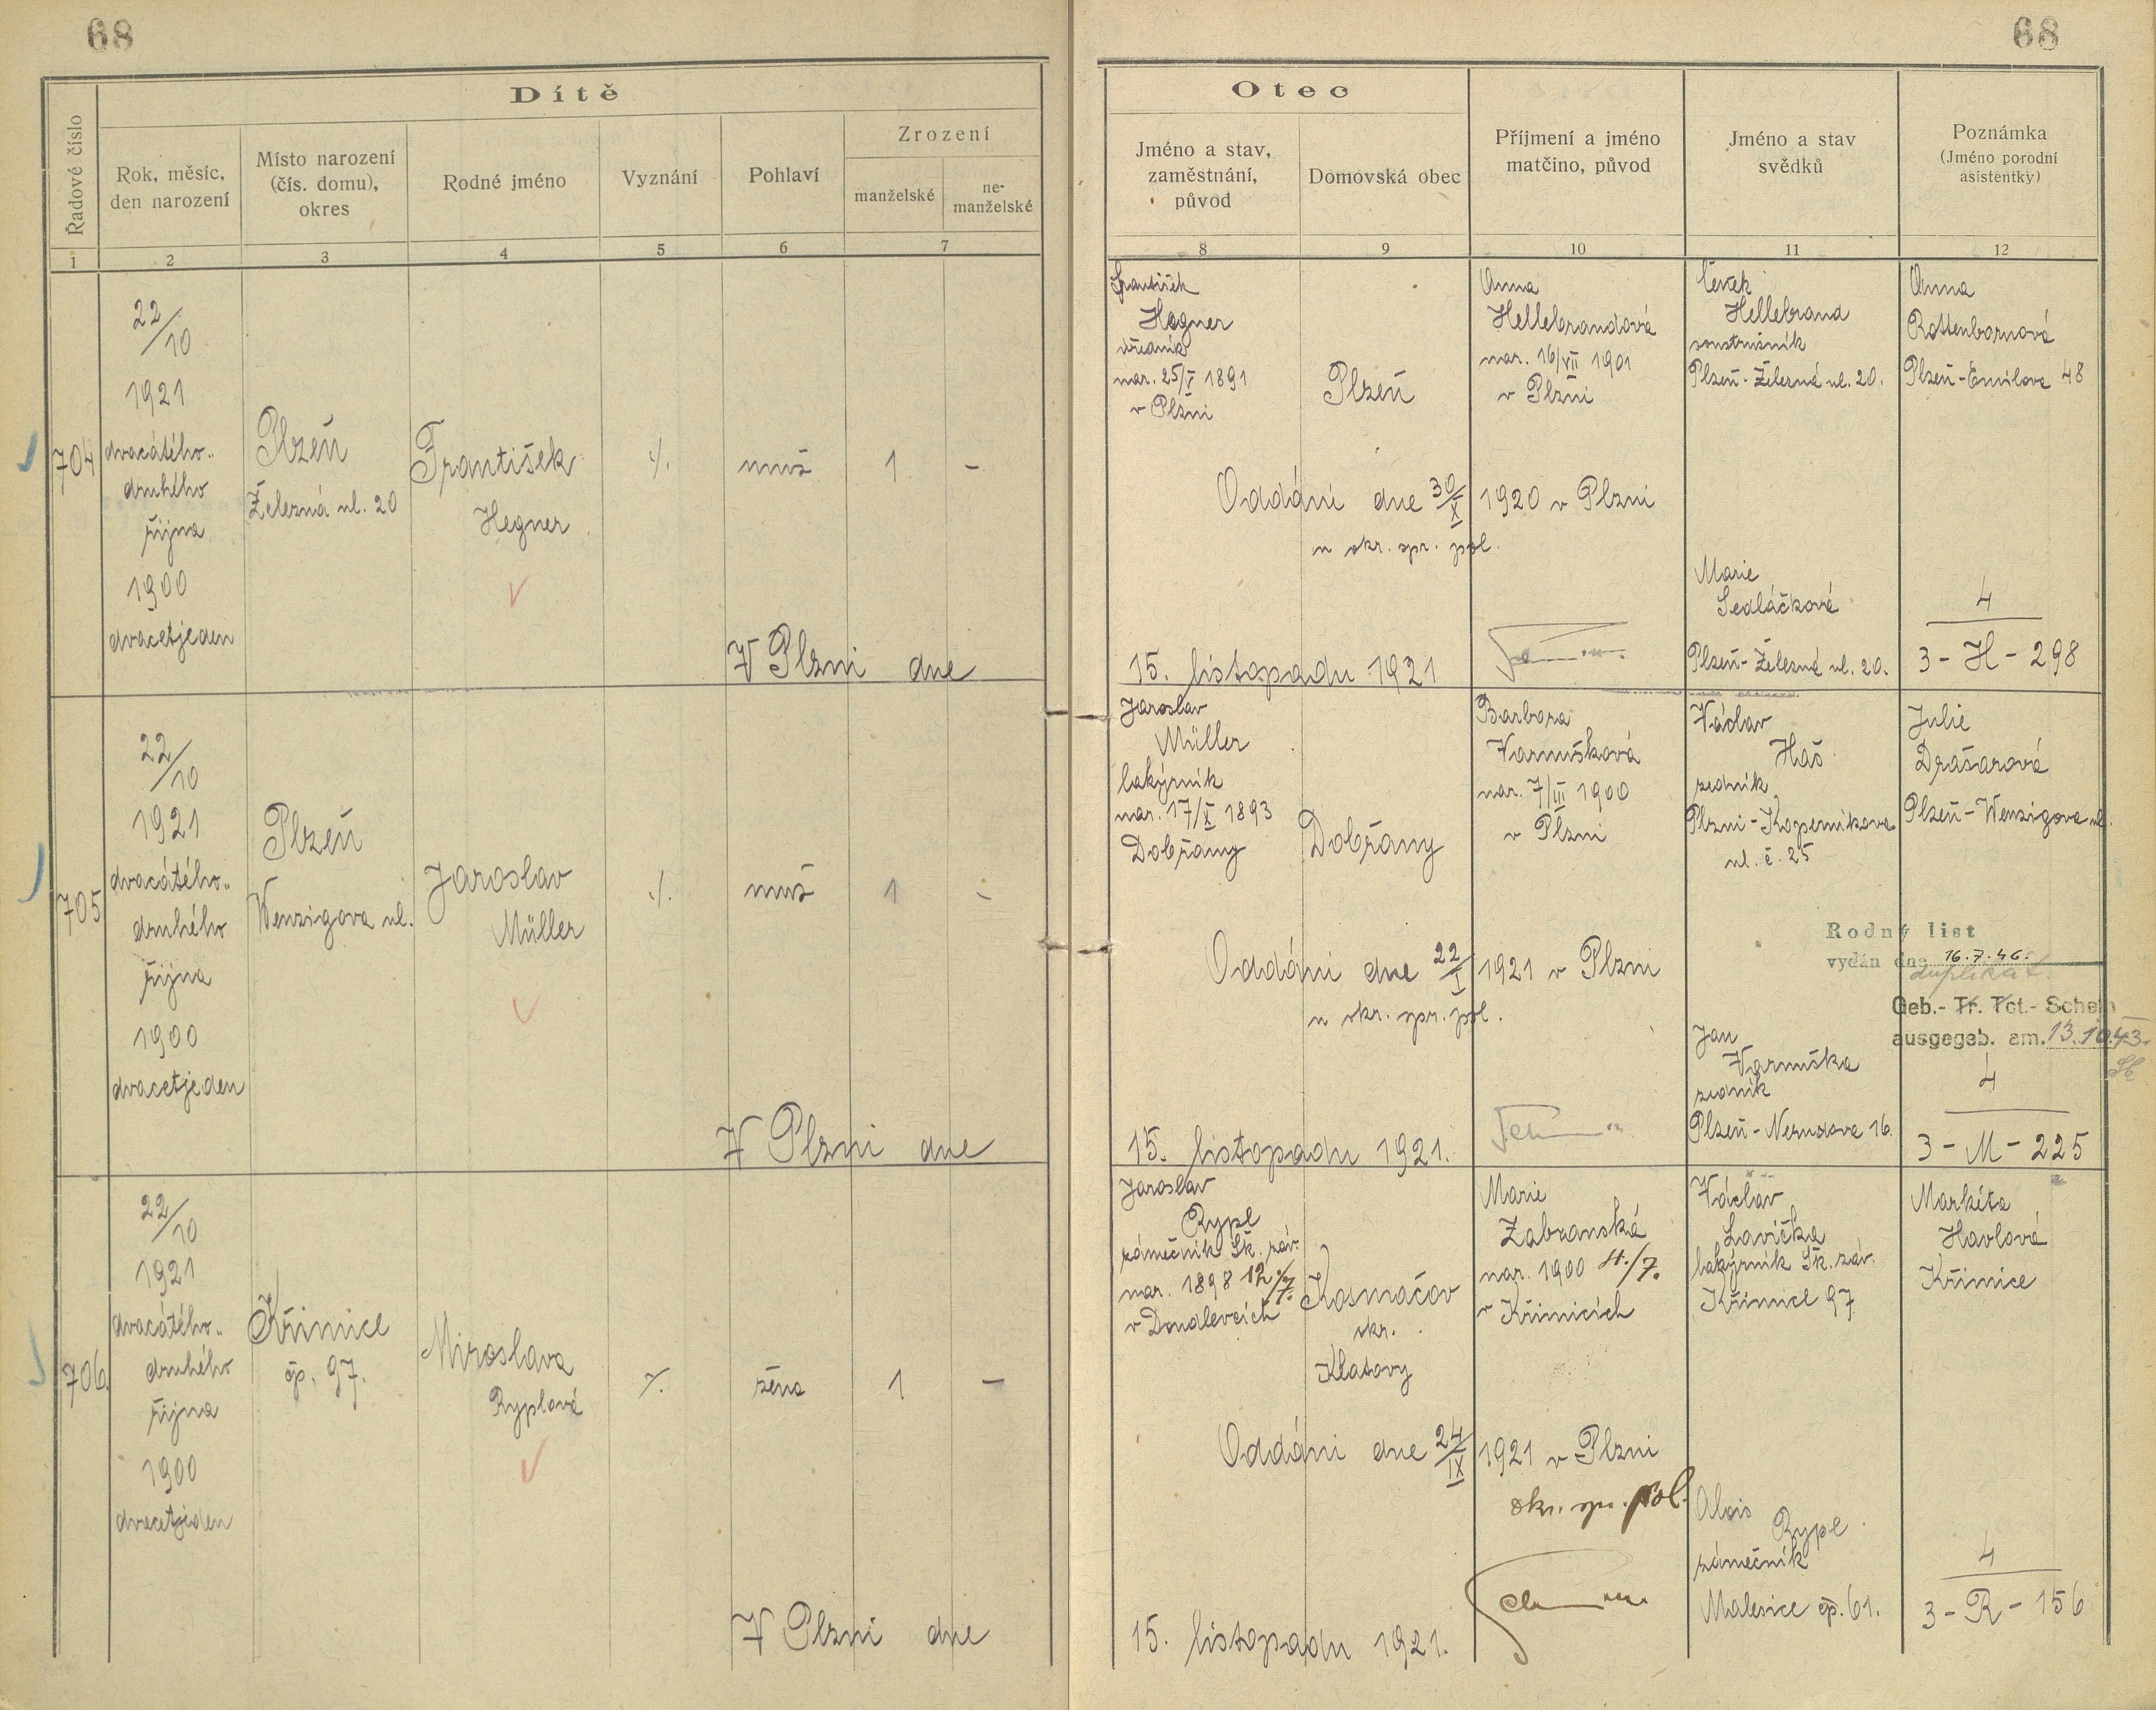 68
68
Dítě
Řadové číslo
Rok, měsíc,
den narození
Místo narození
(čís. domu),
okres
Rodné jméno
Vyznání
Pohlaví
Zrození
manželské
ne-
manželské
1
2
3
4
5
6
7
Otec
Jméno a stav,
zaměstnání,
původ
Domovská obec
Příjmení a jméno
matčino, původ
Jméno a stav
svědků
Poznámka
(Jméno porodní
asistentky)
8
9
10
11
12
704
22/10
1921
dvacátého-
druhého
října
1900
dvacetjeden
Plzeň
Železná ul. 20
František
Hegner
./.
muž
1
-
V Plzni dne
František
Hegner
úředník
nar. 25/V 1891
v Plzni
Plzeň
Anna
Hellebrandová
nar. 16/VII 1901
v Plzni
Čeněk
Hellebrand
soustružník
Plzeň-Železná ul. 20.
Anna
Rottenbornová
Plzeň-Emilova 48
Oddáni dne 30/X 1920 v Plzni
u okr. spr. pol.
Marie
Sedláčková
Plzeň-Železná ul. 20.
4
3-H-298
15. listopadu 1921
705
22/10
1921
dvacátého-
druhého
října
1900
dvacetjeden
Plzeň
Wenzigova ul.
Jaroslav
Müller
./.
muž
1
-
V Plzni dne
Jaroslav
Müller
lakýrník
nar. 17/X 1893
Dobřany
Dobřany
Barbora
Varmušková
nar. 7/III 1900
v Plzni
Václav
Haš
zedník
Plzni-Koperníkova
ul. č. 25
Julie
Drašarová
Plzeň-Wenzigova ul.
Oddáni dne 22/I 1921 v Plzni
u okr. spr. pol.
Rodný list
vydán dne 16.7.46.
duplikát
Geb.- Tr. Tot.- Schein
ausgegeb. am. 13.10.43.
Jan
Varmuška
zedník
Plzeň-Nerudova 16.
4
3-M-225
15. listopadu 1921.
706.
22/10
1921
dvacátého-
druhého
října
1900
dvacetjeden
Křimice
čp. 97.
Miroslava
Ryplová
./.
žena
1
-
V Plzni dne
Jaroslav
Rypl
zámečník Šk. záv.
nar. 1898 12./7.
v Doudlevcích
Kosmáčov
okr.
Klatovy
Marie
Zabranská
nar. 1900 4./7.
v Křimicích
Václav
Lavička
lakýrník Šk. záv.
Křimice 97
Markéta
Havlová
Křimice
Oddáni dne 24/IX 1921 v Plzni
okr. spr. pol.
Alois
Rypl
zámečník
Malesice čp. 61.
4
3-R-156
15. listopadu 1921.